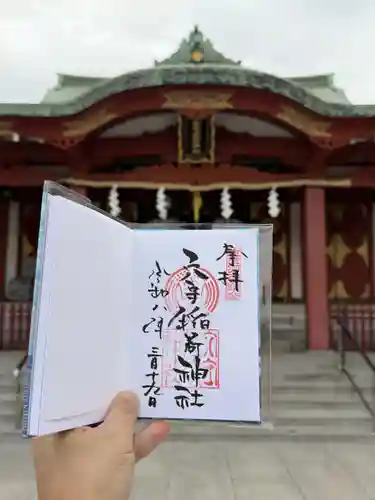 奉拝
穴守稲荷神社
令和八年
三月十九日